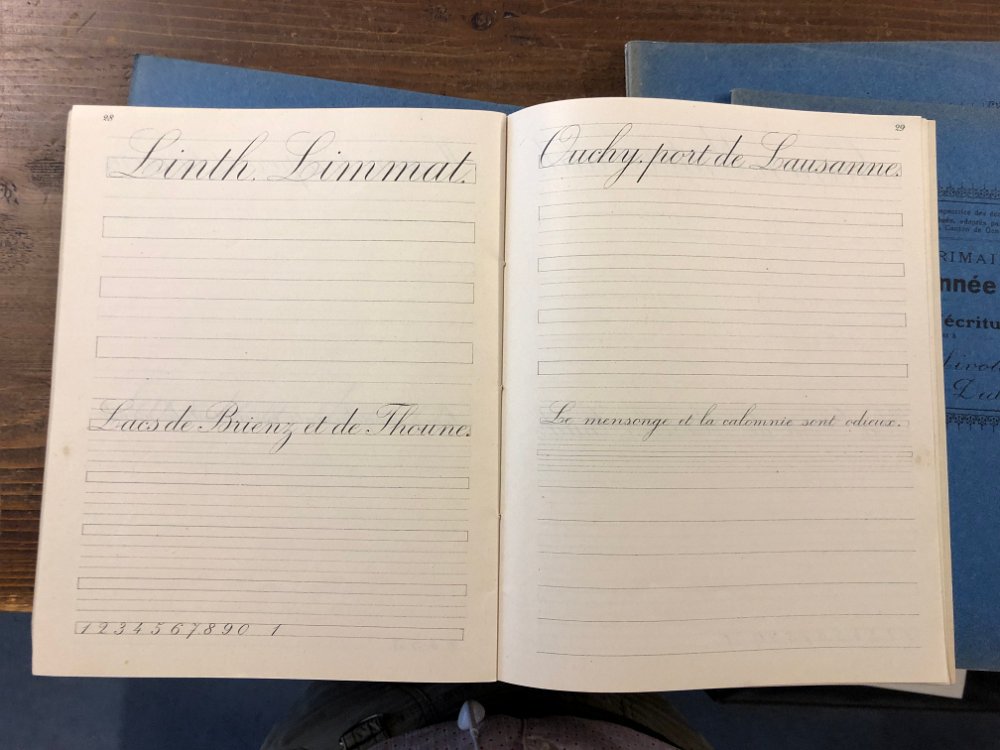 28
Linth. Limmat.
Lacs de Brienz et de Thoune.
1 2 3 4 5 6 7 8 9 0 1
29
Ouchy, port de Lausanne.
Le mensonge et la calomnie sont odieux.
RIMAI
nnée
écritu